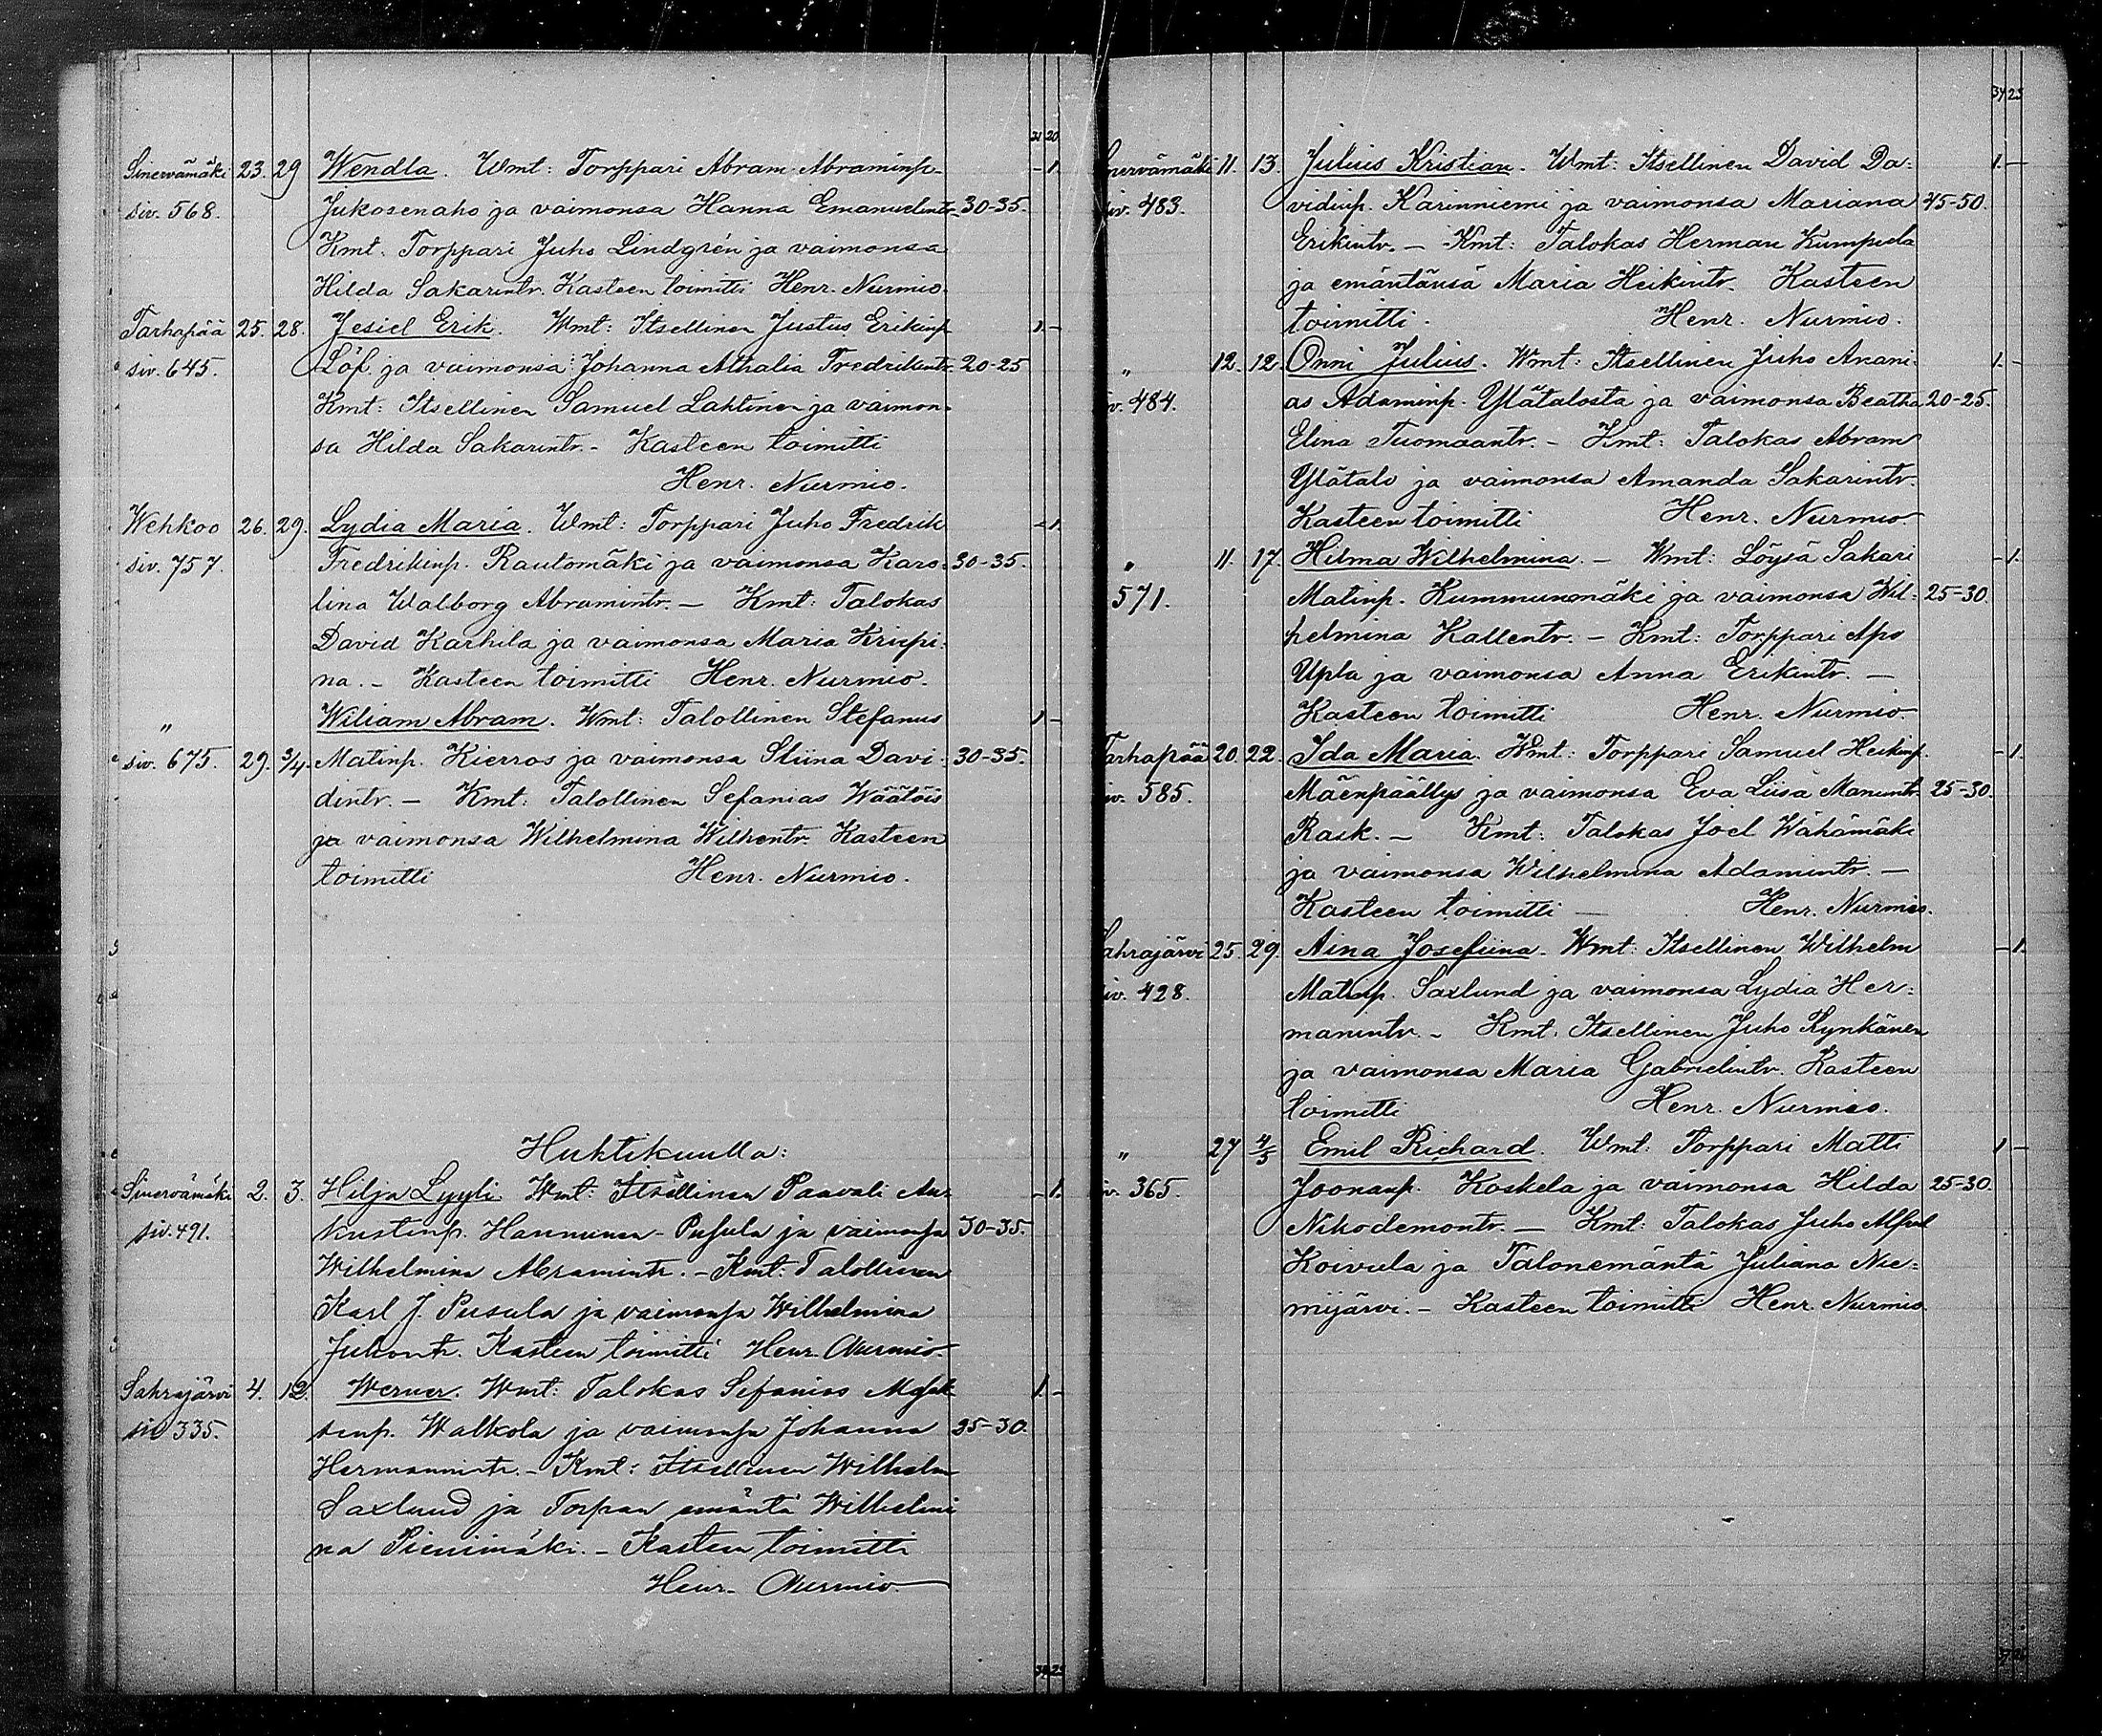 31 20
Sinervämäki 23. 29 Wendla. Wmt: Torppari Abram Abraminp. - 1.
siv. 568. Jukosenaho ja vaimonsa Hanna Emanuelintr. 30-35.
Kmt. Torppari Juho Lindgrén ja vaimonsa
Hilda Sakarintr. Kasteen toimitti Henr. Nurmio.
Tarhapää 25. 28. Jesiel Erik. Wmt: Itsellinen Justus Erikinp. 1. -
siv. 645. Löf ja vaimonsa Johanna Athalia Fredrikintr. 20-25
Kmt: Itsellinen Samuel Lahtinen ja vaimon-
sa Hilda Sakarintr. - Kasteen toimitti
Henr. Nurmio.
Wehkoo 26. 29. Lydia Maria. Wmt: Torppari Juho Fredrik - 1.
siv. 757. Fredrikinp. Rautomäki ja vaimonsa Karo- 30-35.
lina Walborg Abramintr. - Kmt: Talokas
David Karhila ja vaimonsa Maria Krispi-
na. - Kasteen toimitti Henr. Nurmio.
" Wiliam Abram. Wmt: Talollinen Stefanus 1 -
siv. 675. 29. 3/4. Matinp. Kierros ja vaimonsa Stiina Davi- 30-35.
dintr. - Kmt: Talollinen Sefanias Wäätöis
ja vaimonsa Wilhelmina Wilhentr. Kasteen
toimitti Henr. Nurmio.
Huhtikuulla:
Sinervämäki 2. 3. Hilja Lyyli. Wmt: Itsellinen Paavali Au- - 1.
siv. 491. kustinp. Hannunen-Pusula ja vaimonsa 30-35.
Wilhelmina Abramintr. - Kmt: Talollinen
Karl J. Pusula ja vaimonsa Wilhelmina
Juhontr. Kasteen toimitti Henr. Nurmio.
Sahrajärvi 4. 12. Werner. Wmt: Talokas Sefanias 1. -
siv 335. Walkola ja vaimonsa Johanna 25-30.
Hermannintr. - Kmt: Itsellinen Wilhelm
Saxlund ja Torpan emäntä Wilhelmi
na Pienimäki. - Kasteen toimitti
Henr. Nurmio.
34 25
34 25
Sinervämäki 11. 13. Julius Kristian. Wmt: Itsellinen David Da- 1. -
siv. 483. vidinp. Karinniemi ja vaimonsa Mariana 45-50.
Erikintr. - Kmt: Talokas Herman Kumpula
ja emäntänsä Maria Heikintr. Kasteen
toimitti. Henr. Nurmio.
" 12. 12. Onni Julius. Wmt: Itsellinen Juho Anani- 1. -
iv. 484. as Adaminp. Ylätalosta ja vaimonsa Beatha 20-25.
Elina Tuomaantr. - Kmt: Talokas Abram
Ylätalo ja vaimonsa Amanda Sakarintr.
Kasteen toimitti Henr. Nurmio.
" 11. 17. Hilma Wilhelmina. - Wmt: Löysä Sakari - 1.
571. Matinp. Kummunmäki ja vaimonsa Wil- 25-30.
helmina Kallentr. - Kmt: Torppari Apo
Upla ja vaimonsa Anna Erikintr. -
Kasteen toimitti Henr. Nurmio.
Tarhapää 20. 22. Ida Maria. Wmt: Torppari Samuel Heikinp. - 1.
iv. 585. Mäenpäällys ja vaimonsa Eva Liisa Manuntr. 25-30.
Rask. - Kmt: Talokas Joel Wähämäki
ja vaimonsa Wilhelmina Adamintr. -
Kasteen toimitti - Henr. Nurmio.
Sahrajärvi 25. 29. Aina Josefiina. Wmt: Itsellinen Wilhelm - 1.
iv. 428. Matinp. Saxlund ja vaimonsa Lydia Her-
manintr. - Kmt: Itsellinen Juho Rynkänen
ja vaimonsa Maria Gabrielintr. Kasteen
toimitti Henr. Nurmio.
" 27 4/5 Emil Richard. Wmt: Torppari Matti 1 -
iv. 365. Joonanp. Koskela ja vaimonsa Hilda 25-30.
Nikodemontr. - Kmt: Talokas Juho Alfred
Koivula ja Talonemäntä Juliana Nie-
mijärvi. - Kasteen toimitti Henr. Nurmio.